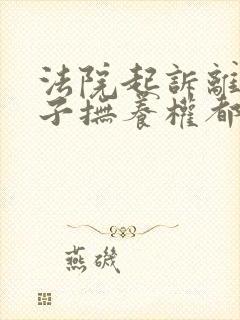 法院起訴離
子撫養權都
燕磯